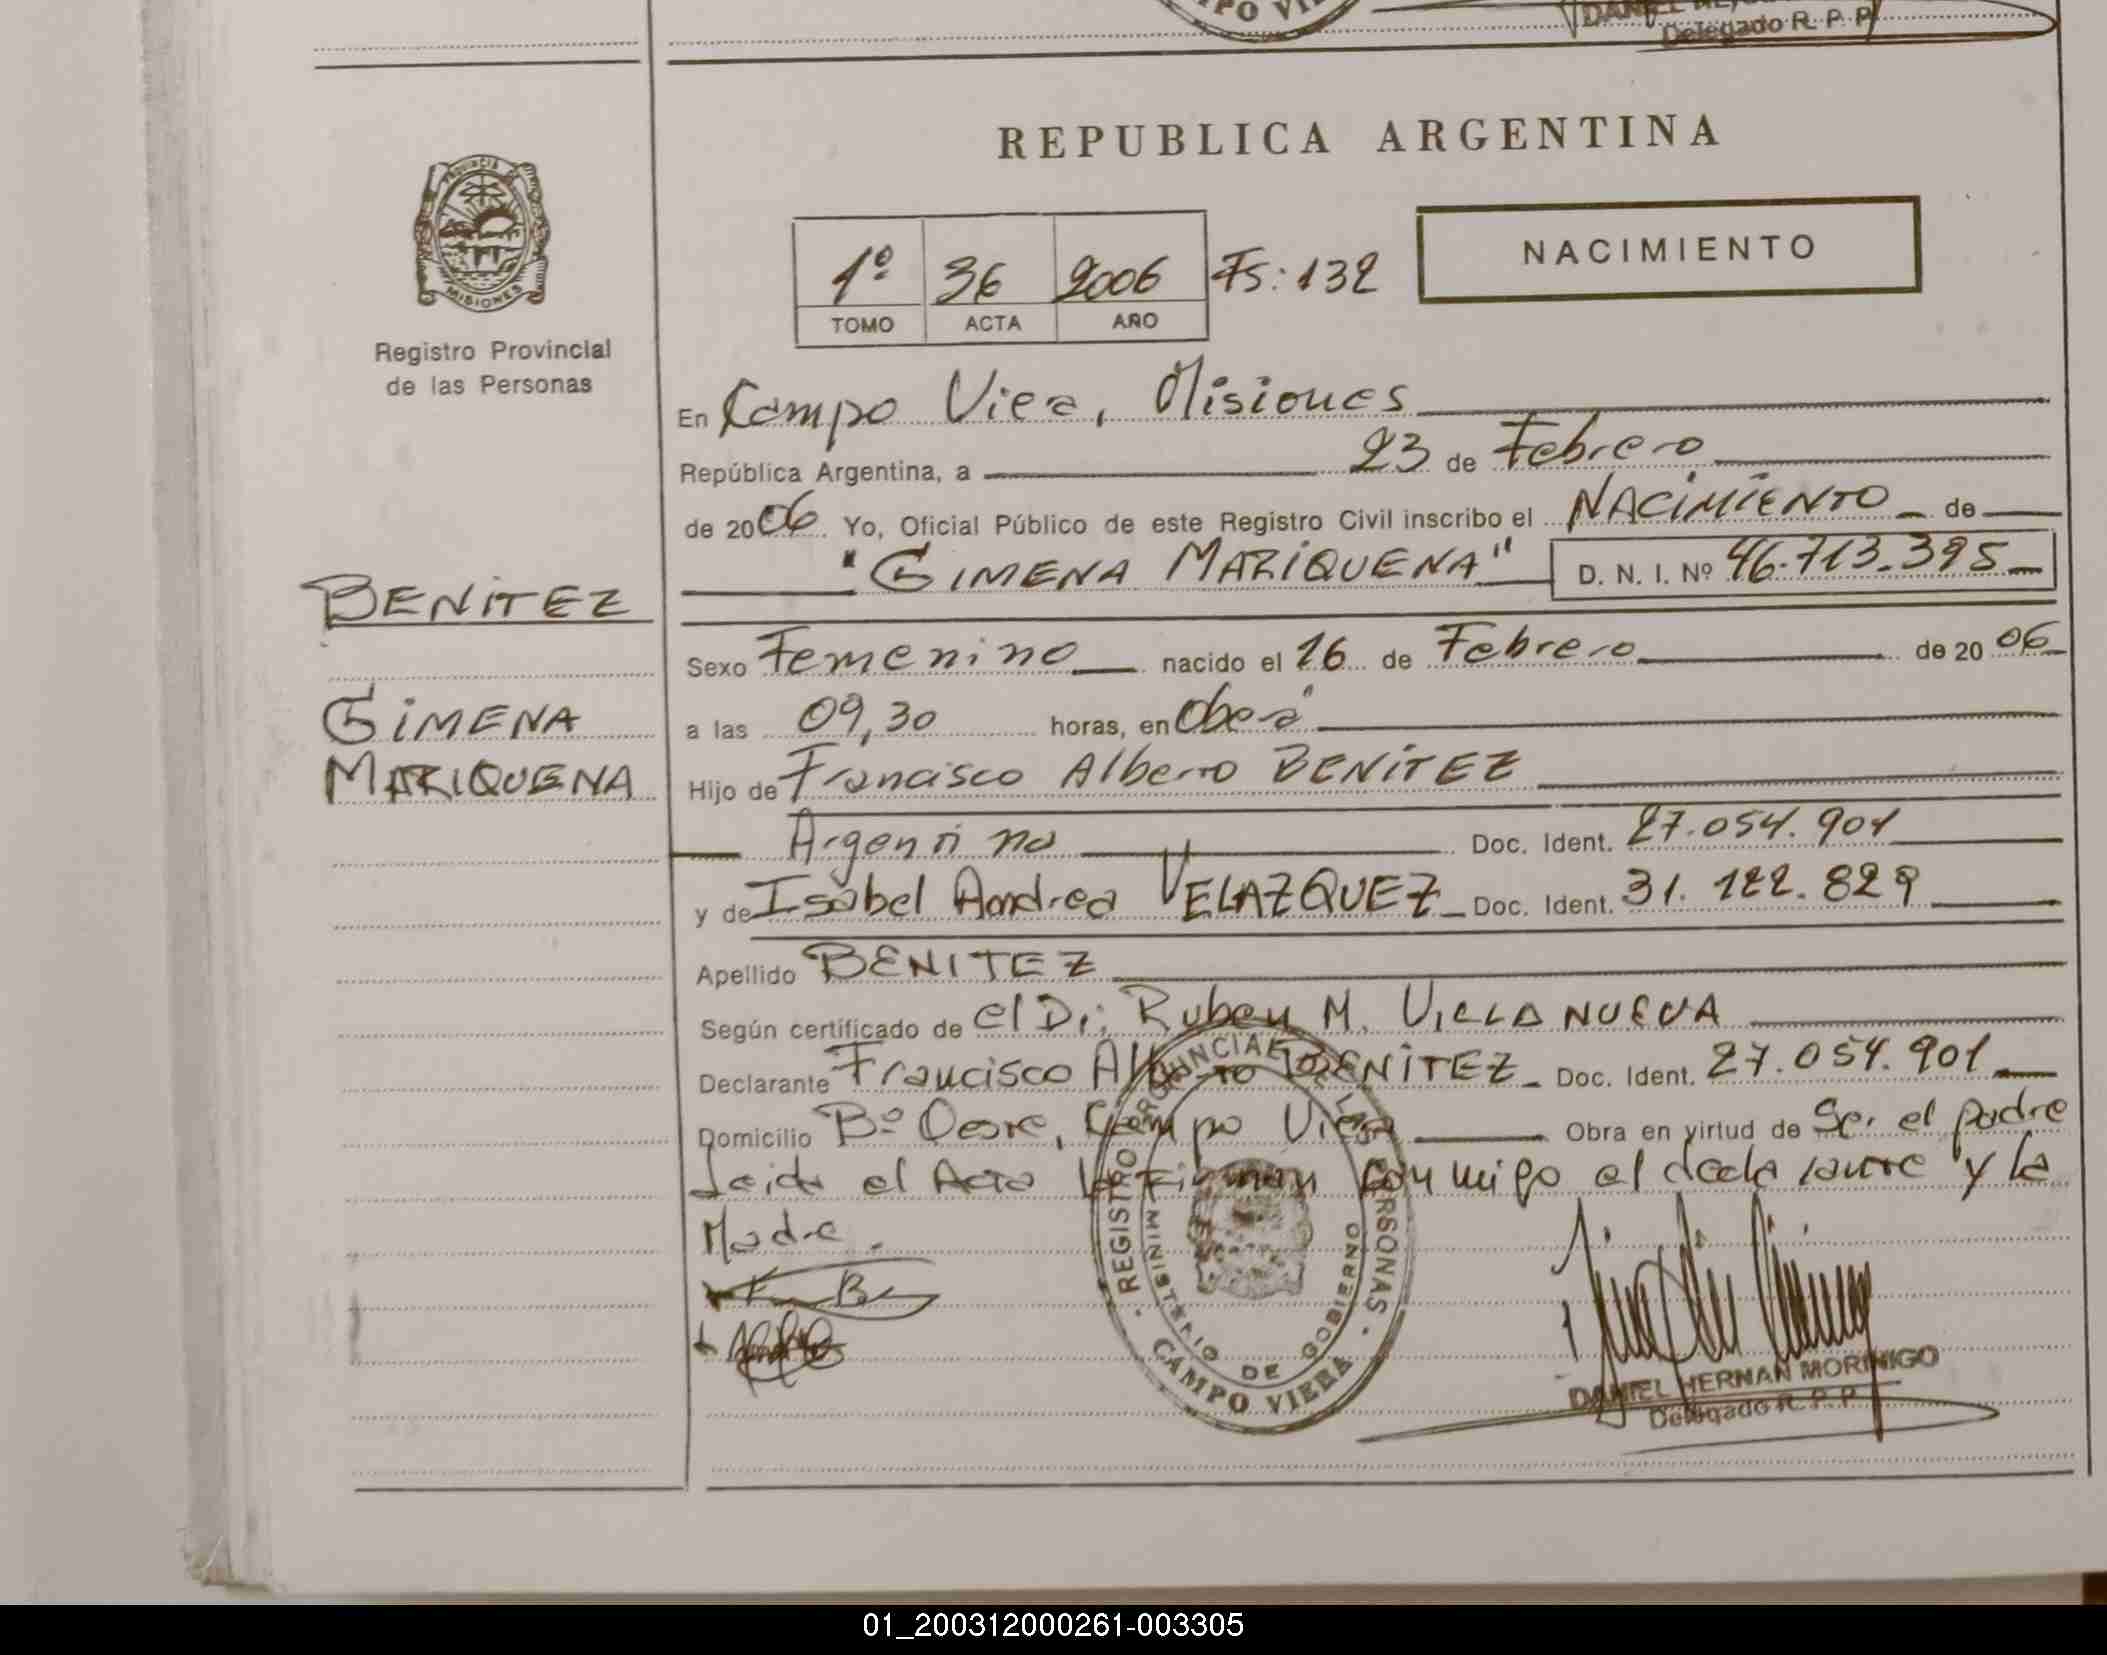 CAMPO VIERA
DANIEL HERNAN
Delegado R. P. P.
REPUBLICA ARGENTINA
PROVINCIA
MISIONES
Registro Provincial
de las Personas
1º 36 2006 Fs: 132
TOMO ACTA AÑO
NACIMIENTO
En Campo Viera, Misiones
República Argentina, a 23 de Febrero
de 2006 Yo, Oficial Público de este Registro Civil inscribo el NACIMIENTO de
"GIMENA MARIQUENA" D. N. I. Nº 46.713.395
BENITEZ
GIMENA
MARIQUENA
Sexo Femenino nacido el 16 de Febrero de 2006
a las 09,30 horas, en Oberá
Hijo de Francisco Alberto BENITEZ
Argentina Doc. Ident. 27.054.901
y de Isabel Andrea VELAZQUEZ Doc. Ident. 31.122.829
Apellido BENITEZ
Según certificado de el Dr: Ruben M. VILLANUEVA
Declarante Francisco Alberto BENITEZ Doc. Ident. 27.054.901
Domicilio Bº Oeste, Campo Viera Obra en virtud de Ser el padre
Leida el Acta la Firman conmigo el declarante y la
Madre.
REGISTRO PROVINCIAL DE LAS PERSONAS
MINISTERIO DE GOBIERNO
CAMPO VIERA
DANIEL HERNAN MORINIGO
Delegado R. P. P.
01_200312000261-003305